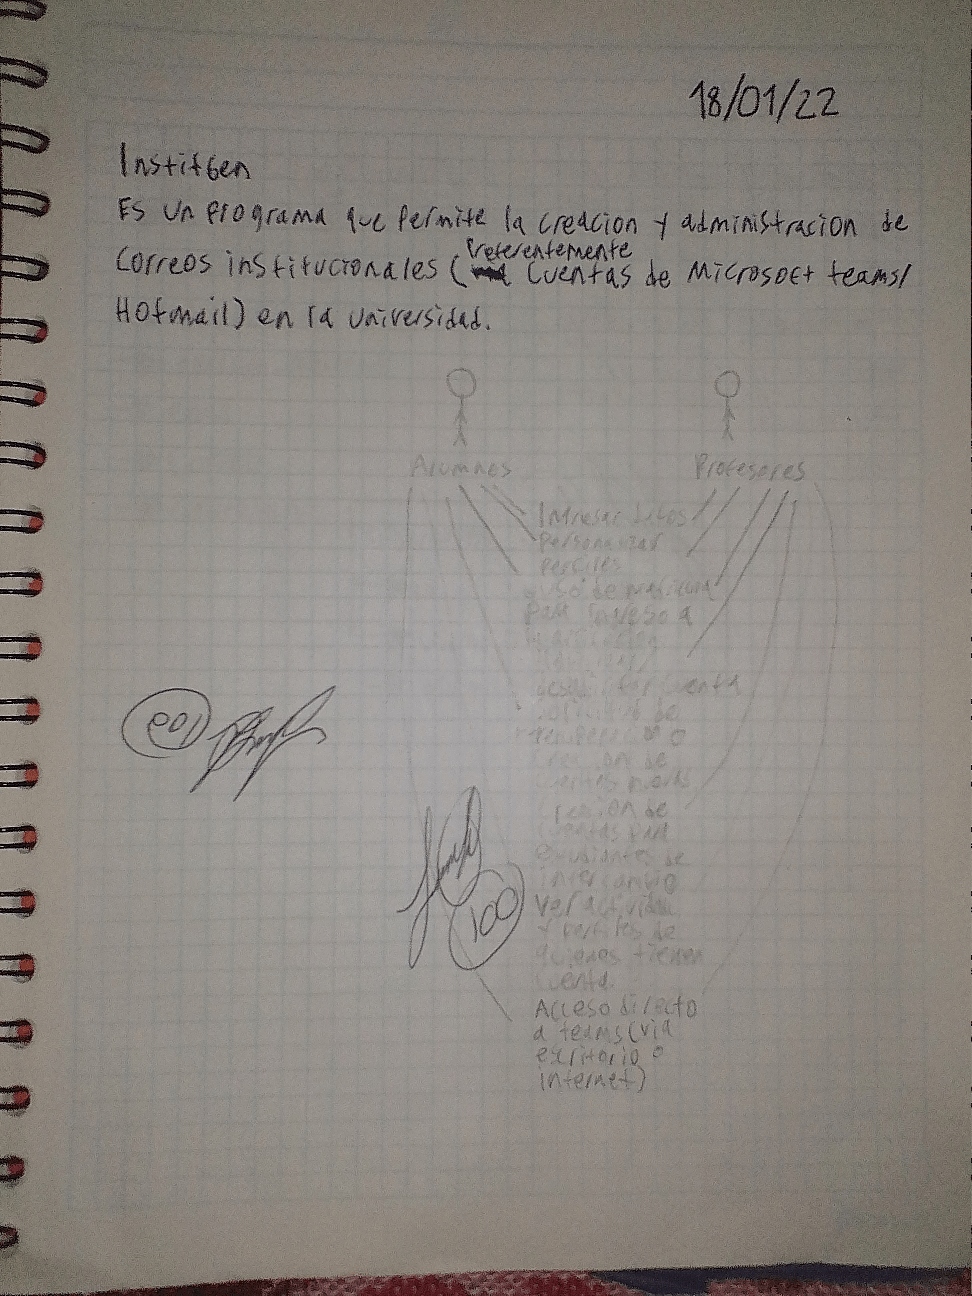 18/01/22
InstitGen
Es un programa que permite la creacion y administracion de
Preferentemente
correos institucionales ( cuentas de Microsoft teams/
Hotmail) en la universidad.
Alumnos Profesores
Ingresar datos
Personalizar
perfiles
uso de matricula
para ingreso a
cuenta
de
o
creacion de
cuentas nuevas
Creacion de
cuentas para
estudiantes de
intercambio
Ver actividad
y perfiles de
quienes tienen
cuenta.
Acceso directo
a teams (via
exritorio o
internet)
100
100